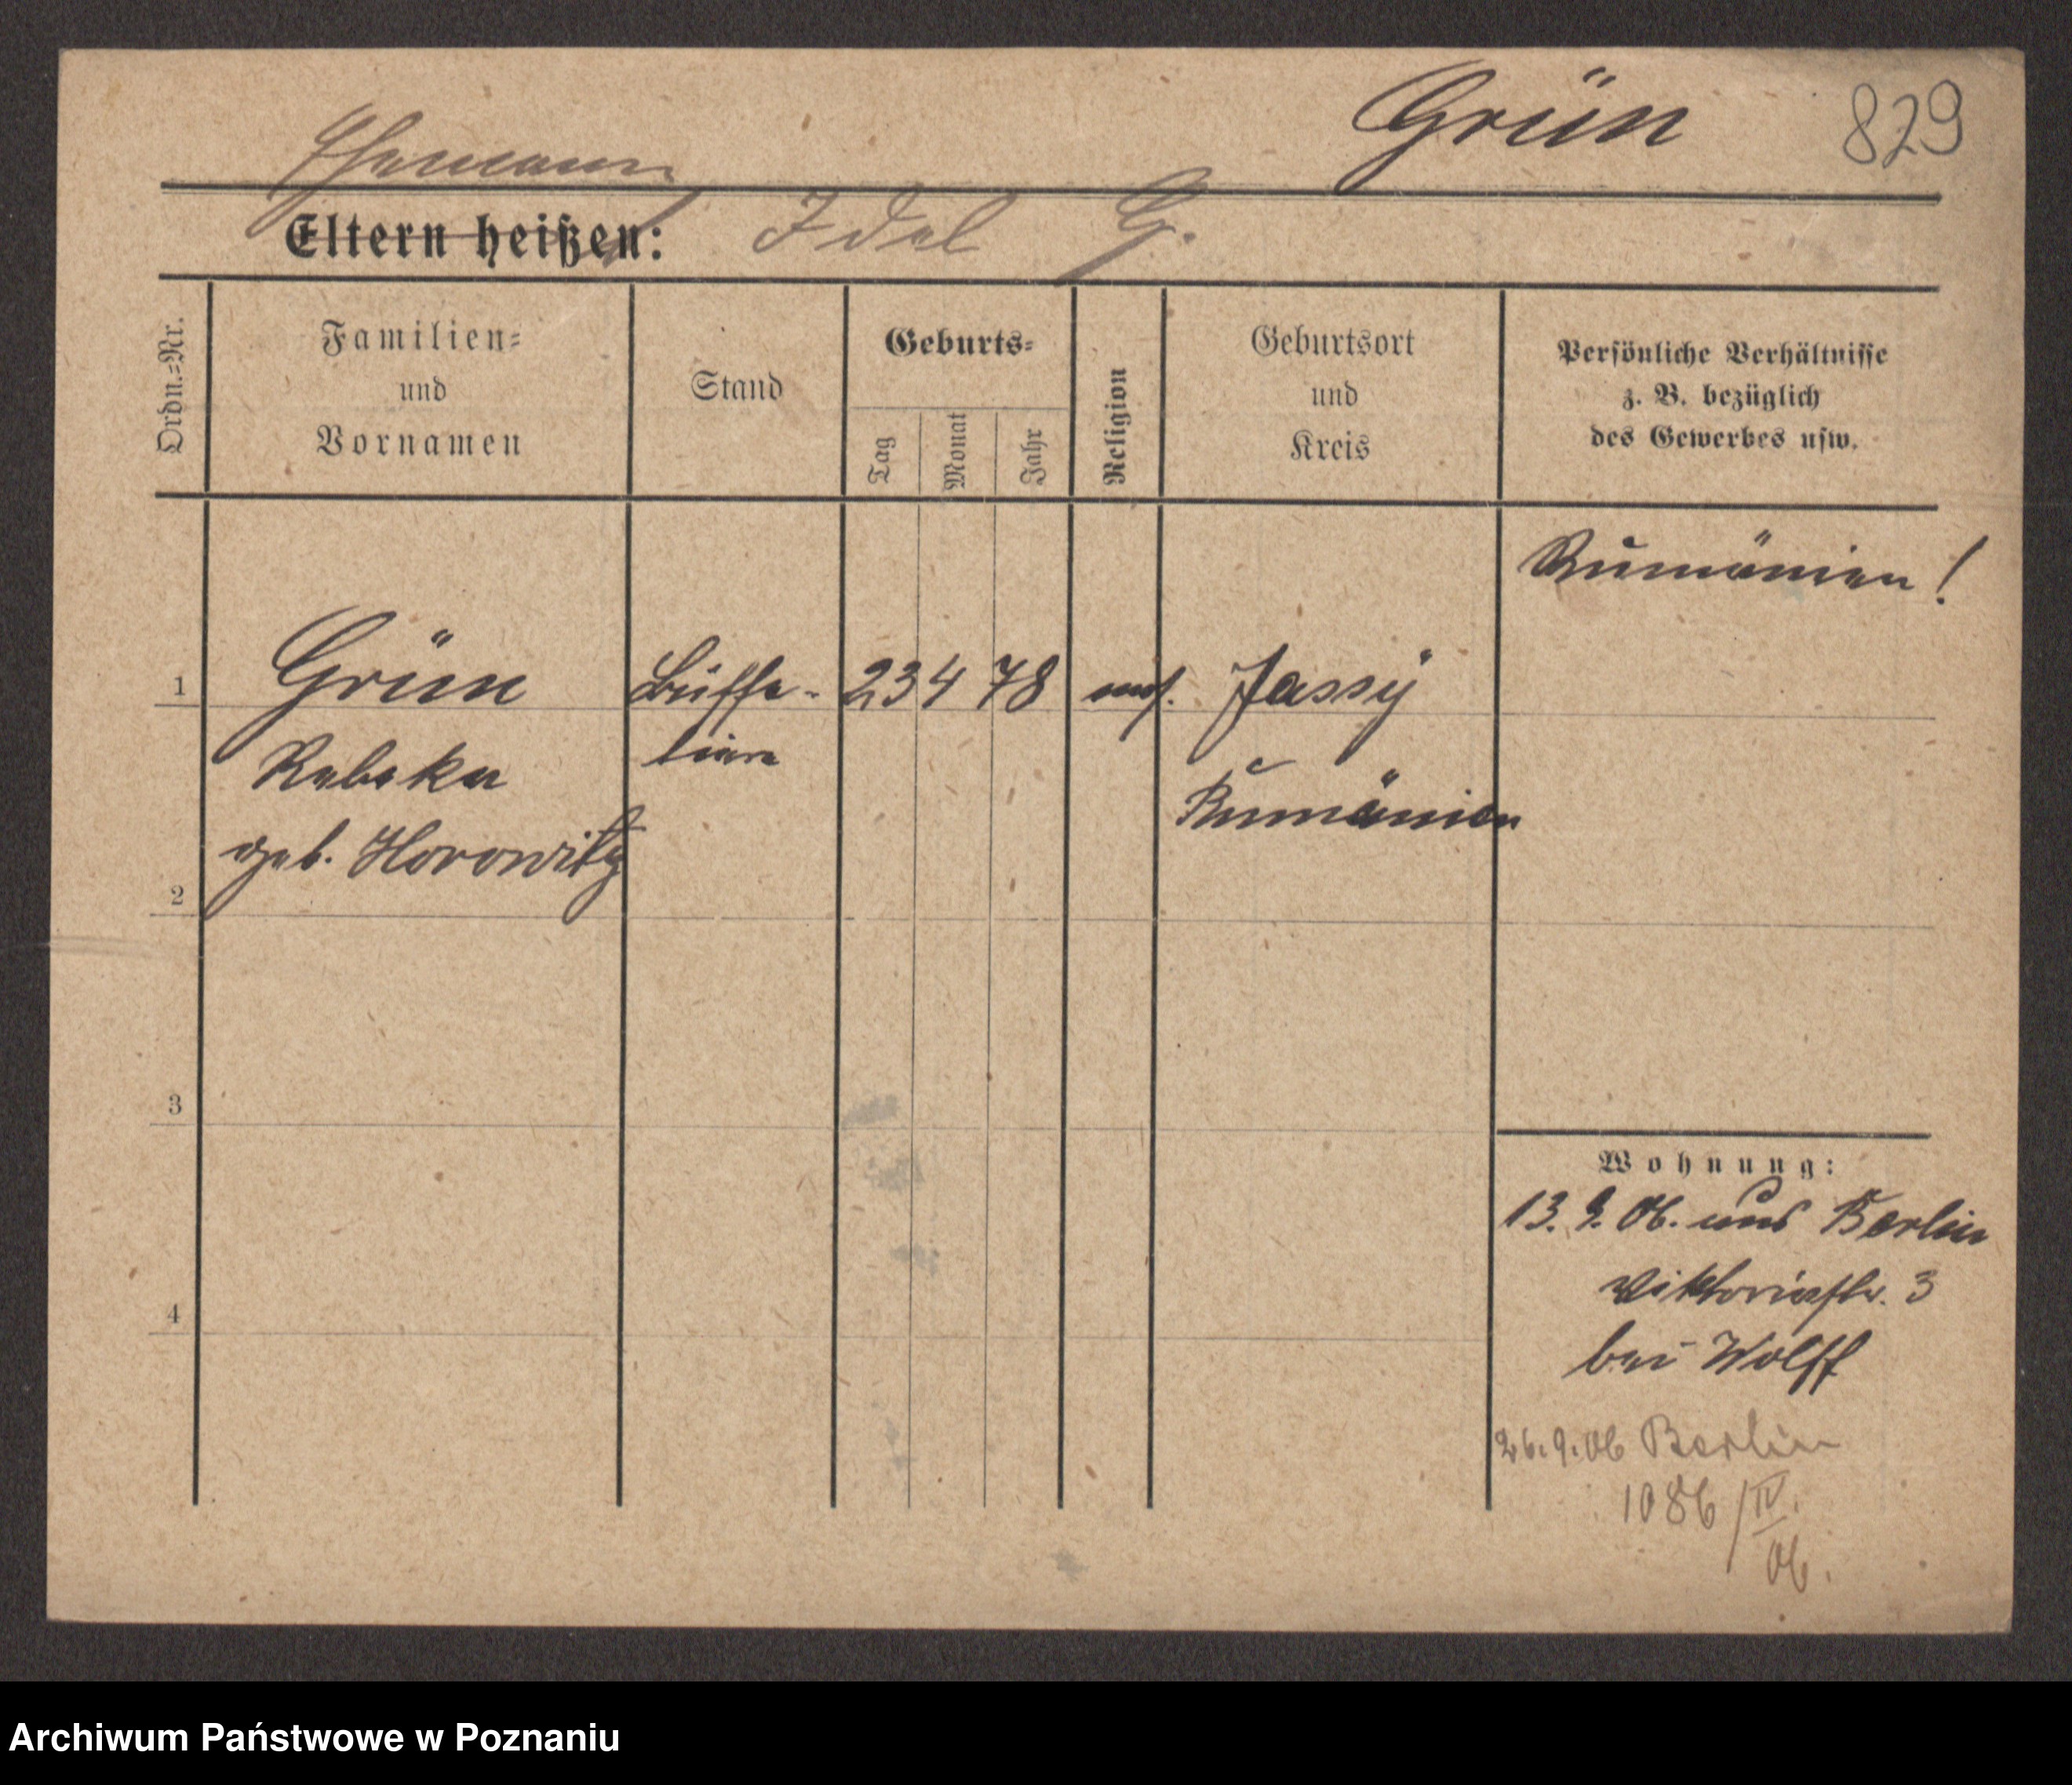 Grün 829
Ehemann
Eltern heißen: Idel G.
Ordn.-Nr.
Familien-
und
Vornamen
Stand
Geburts-
Tag
Monat
Jahr
Religion
Geburtsort
und
Kreis
Persönliche Verhältnisse
z. B. bezüglich
des Gewerbes usw.
Rumänien!
1 Grün Büffe- 23 4 78 mos. Jassy
Rebeka tiere
Rumänien
geb. Horowitz
2
3
4
Wohnung:
13. 9. 06. aus Berlin
Viktoriastr. 3
bei Wolff
26.9.06 Berlin
1086/IV.
06.
Archiwum Państwowe w Poznaniu